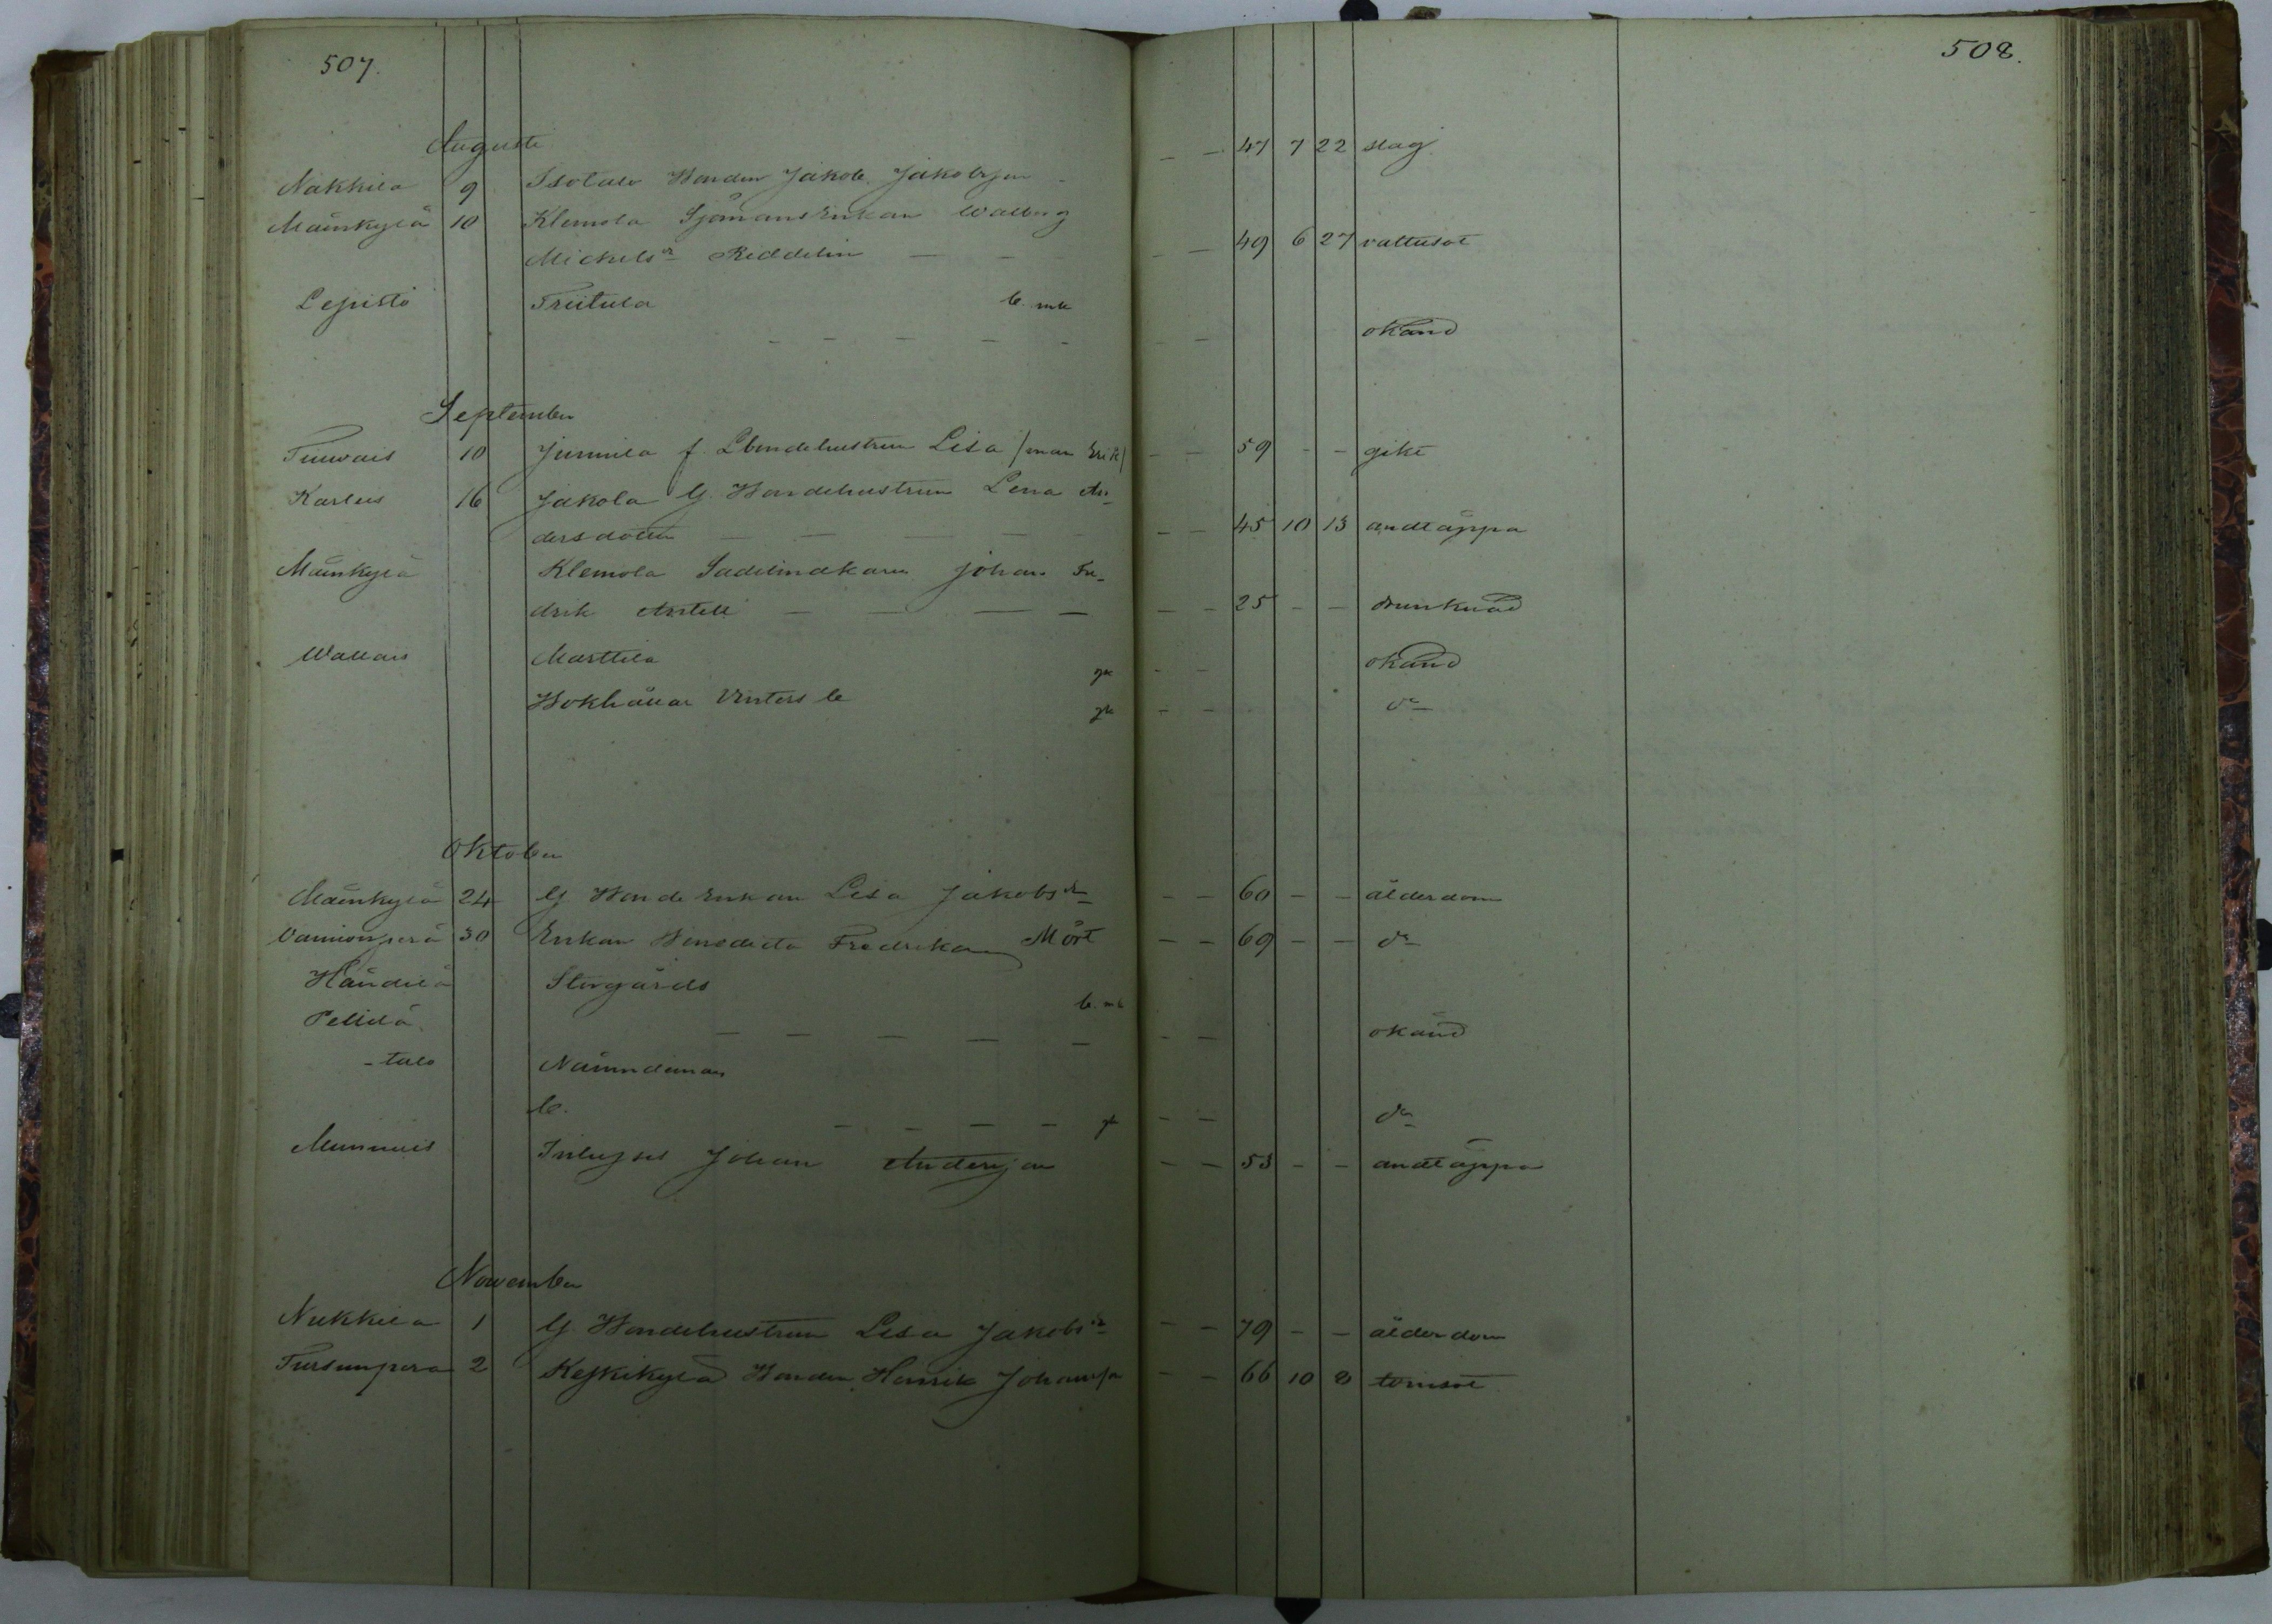 507.
508.
Augusti
Nakkila 9 Isotalo Bonden Jakob Jakobsson - - 47 7 22 slag
Mäenkylä 10 Klemola Sjömans Enkan Walborg
Michelsdr Reddelin - - - 49 6 27 vattusot
Lepistö Friitula b. mk
- - - - - - - okänd
September
Tuiwais 10 Junnila f. Lbondehustrun Lisa /man Erik/ - - 59 - - gikt
Karlus 16 Jakola G. Bondehustrun Lena An-
dersdotter - - - - - - 45 10 13 andtäppa
Mäenkylä Klemola Sadelmakaren Johan Fre-
drik Antell - - - - - - 25 - - drunknad
Wallais Marttila gk - - okänd
Bokhållar Vinters b gk - - do
Oktober
Mäenkylä 24 G Bonde Enkan Lisa Jakobsdr - - 60 - - ålderdom
Vainionperä 30 Enkan Benedicta Fredrika Mört - - 69 - - do
Händilä Storgårds b. mk
Pelldä - - - - - - - okänd
-talo Nämndeman
b. - - - - gk - - do
Munnuis Inhyses Johan Andersson - - 53 - - andtäppa
November
Nukkila 1 G. Bondehustrun Lisa Jakobsdr - - 79 - - ålderdom
Tursunpera 2 Keskikylä Bonden Henrik Johansson - - 66 10 8 tvinsot